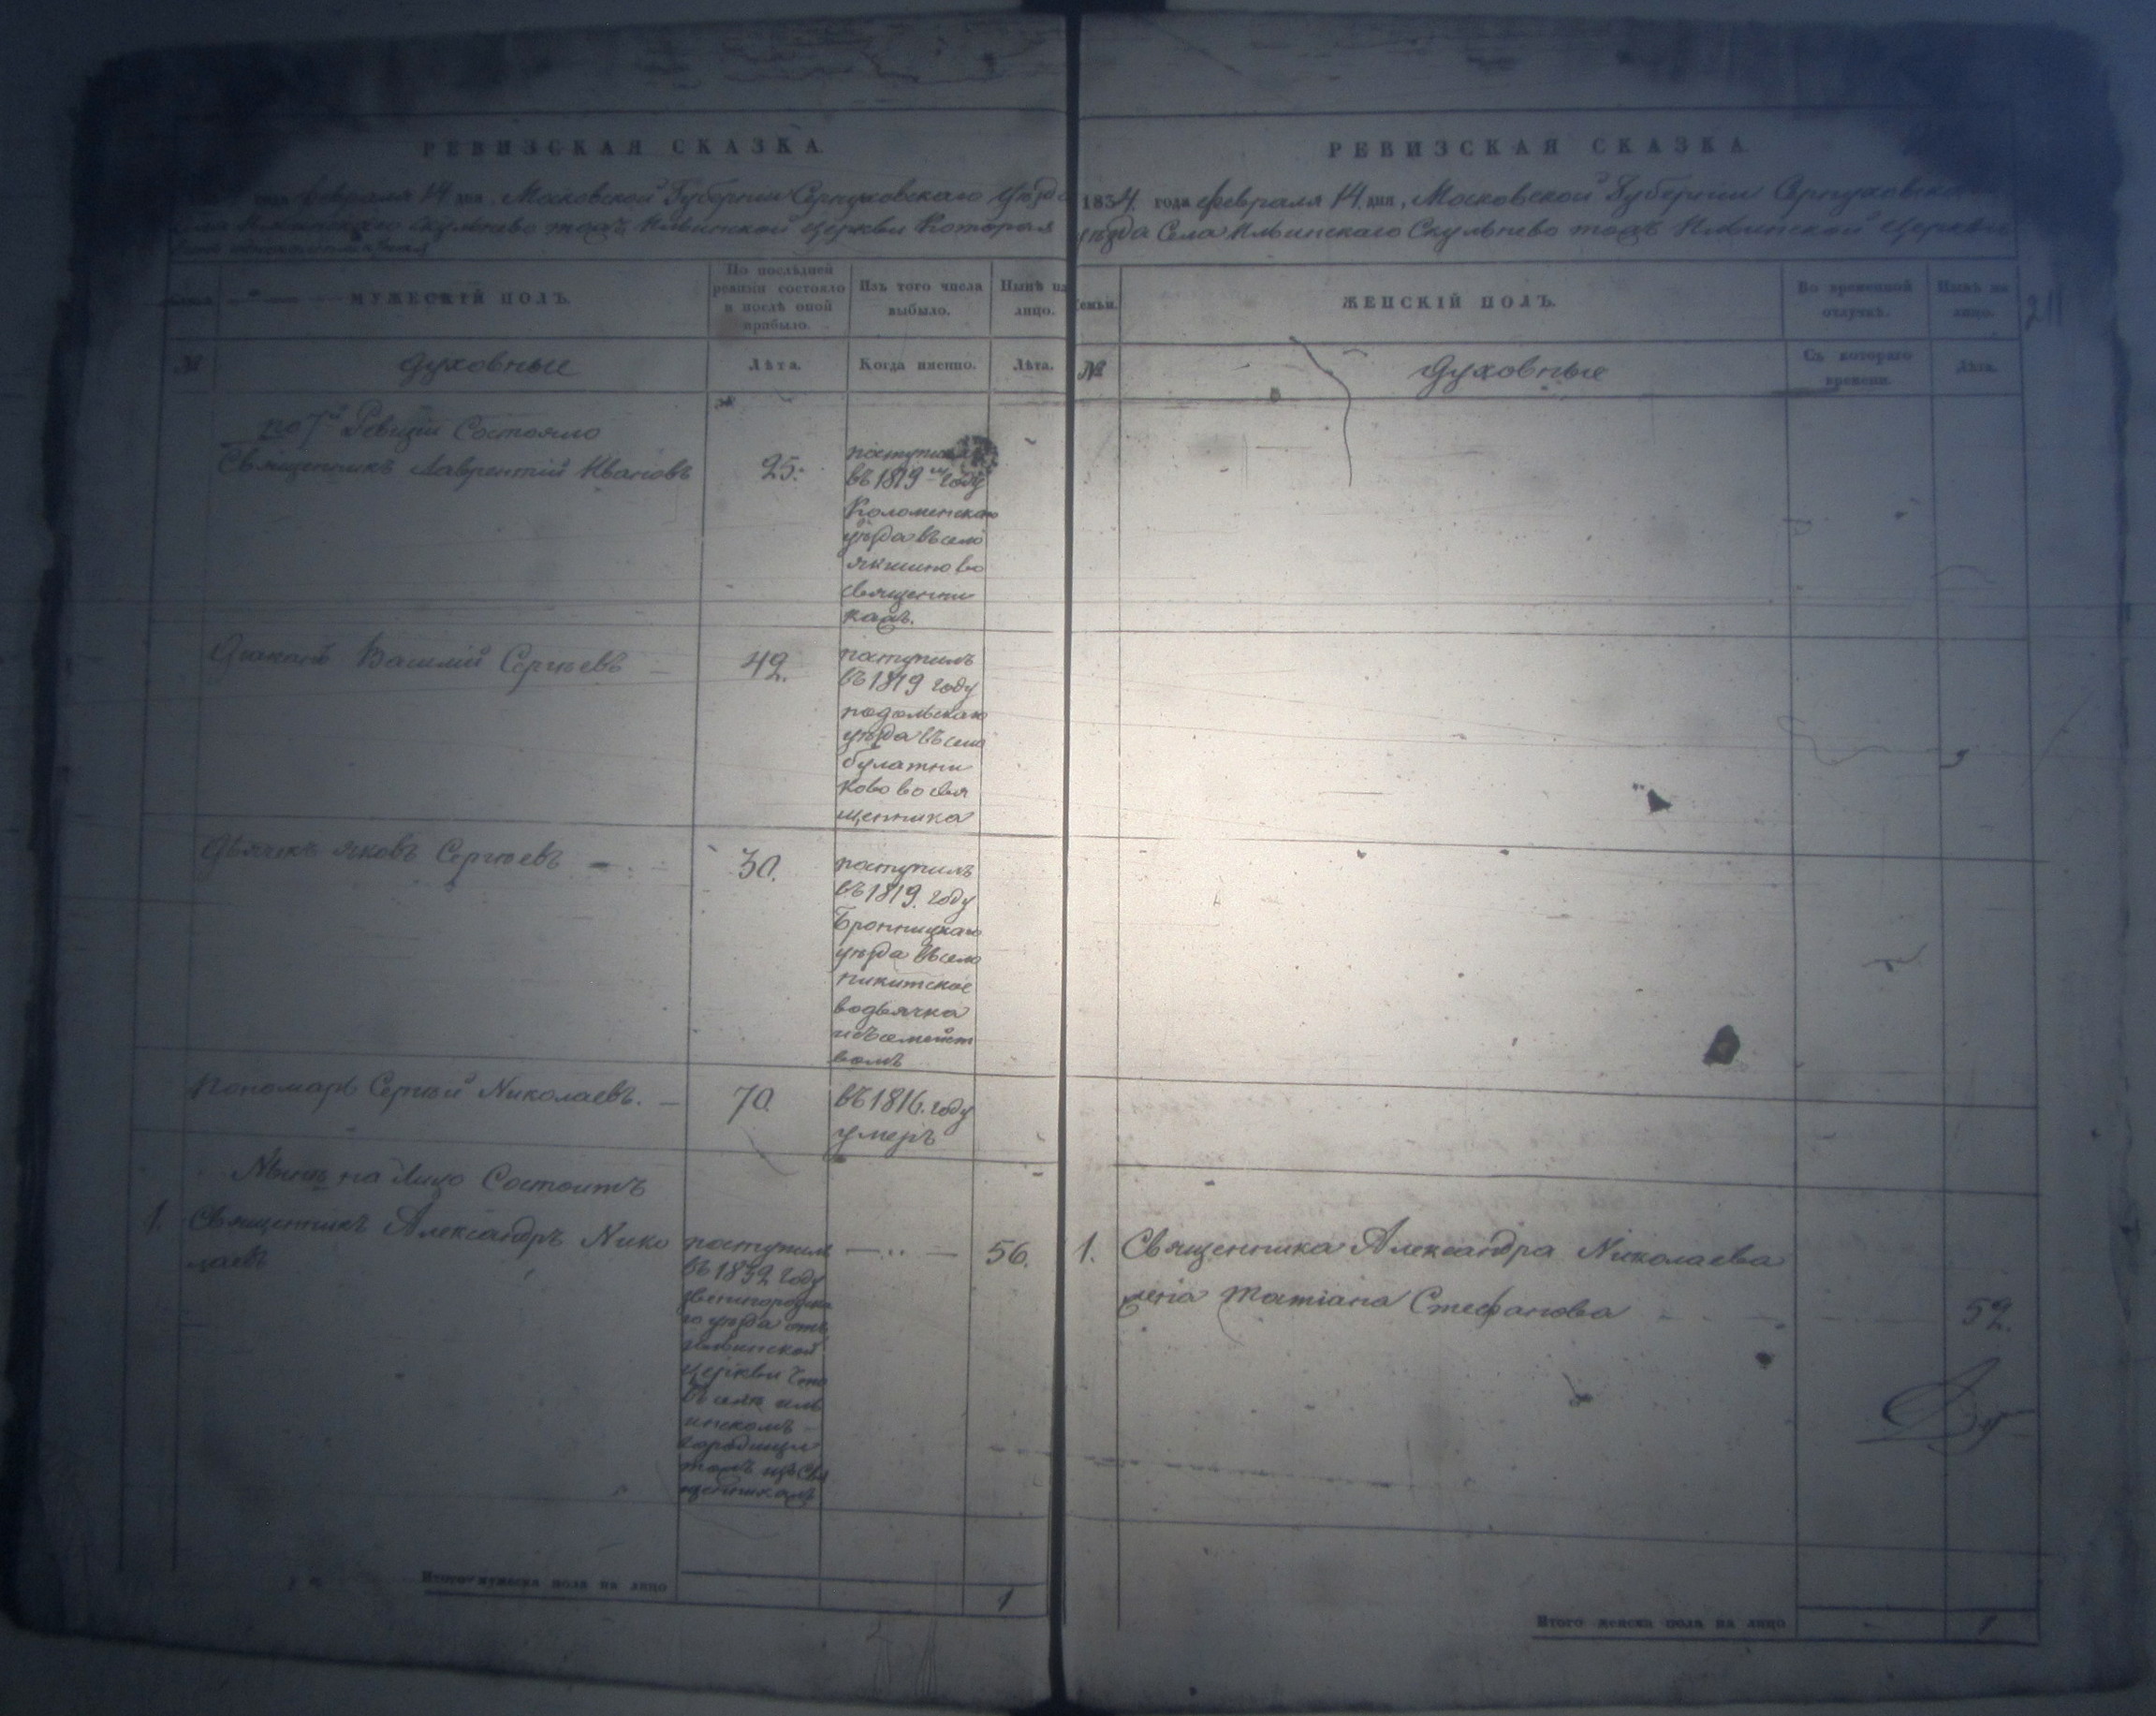 РЕВИЗСКАЯ СКАЗКА.
года февраля 14 дня, Московской Губернии Серпуховскаго уѣзда
села Ильинскаго Скульнево тожъ Ильинской церкви Которая
МУЖЕСКІЙ ПОЛЪ.
По послѣдней ревизіи состояло и послѣ оной прибыло.
Изъ того числа выбыло.
Нынѣ на лицо.
№
духовные
Лѣта.
Когда именно.
Лѣта.
по 7й Ревизіи Состояло
Священникъ Лаврентій Ивановъ
25.
поступилъ
въ 1819м году
Коломенскаго
уѣзда въ село
якшино во
священни
кахъ.
Діаконъ Василій Сергѣевъ
42.
поступилъ
въ 1819 году
подольскаго
уѣзда въ село
булатни
ково во свя
щенника
Дьячекъ яковъ Сергѣевъ
30.
поступилъ
въ 1819. году
Бронницкаго
уѣзда въ село
никитское
во дьячка
и съ семейст
вомъ
Пономарь Сергѣй Николаевъ.
70.
въ 1816. году
умеръ
Нынѣ на лицо Состоитъ
1.
Священникъ Александръ Нико
лаевъ
поступилъ
въ 1832 году
звенигородска
го уѣзда отъ
ильинской
церкви что
въ селѣ иль
инскомъ
городище
тожъ
священникамъ
56.
Итого мужеска пола на лицо
1
РЕВИЗСКАЯ СКАЗКА.
1834. года февраля 14. дня, Московской Губерніи Серпуховскаго
уѣзда Села Ильинскаго Скульнево тожъ Ильинской Церкви
Семьи.
ЖЕНСКІЙ ПОЛЪ.
Во временной отлучкѣ.
Нынѣ на лицо.
211
№
духовные
Съ котораго времени.
Лѣта.
1.
Священника Александра Николаева
жена Татіана Стефанова
52.
Итого женска пола на лицо
1